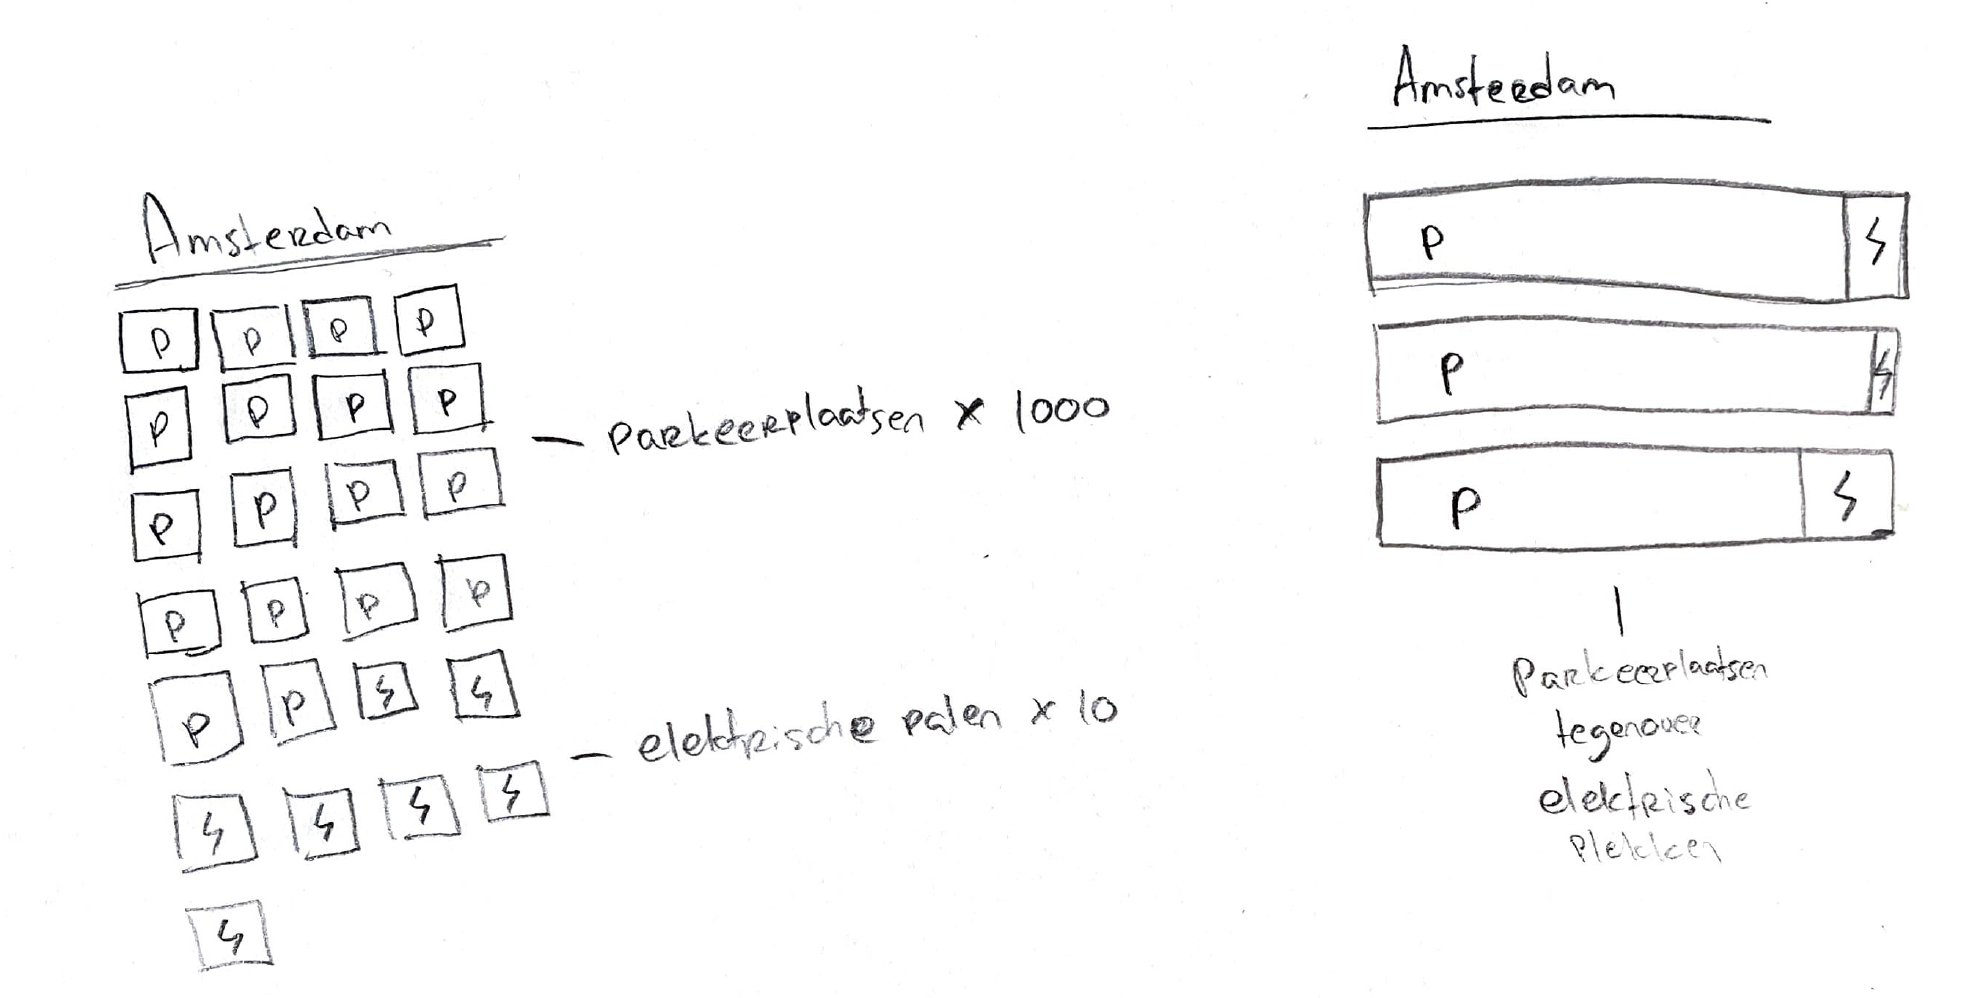 Amsterdam
P P P P
P P P P
P P P P
P P P P
P P
parkeerplaatsen x 1000
elektrische palen x 10
Amsterdam
P
P
P
Parkeerplaatsen
tegenover
elektrische
plekken